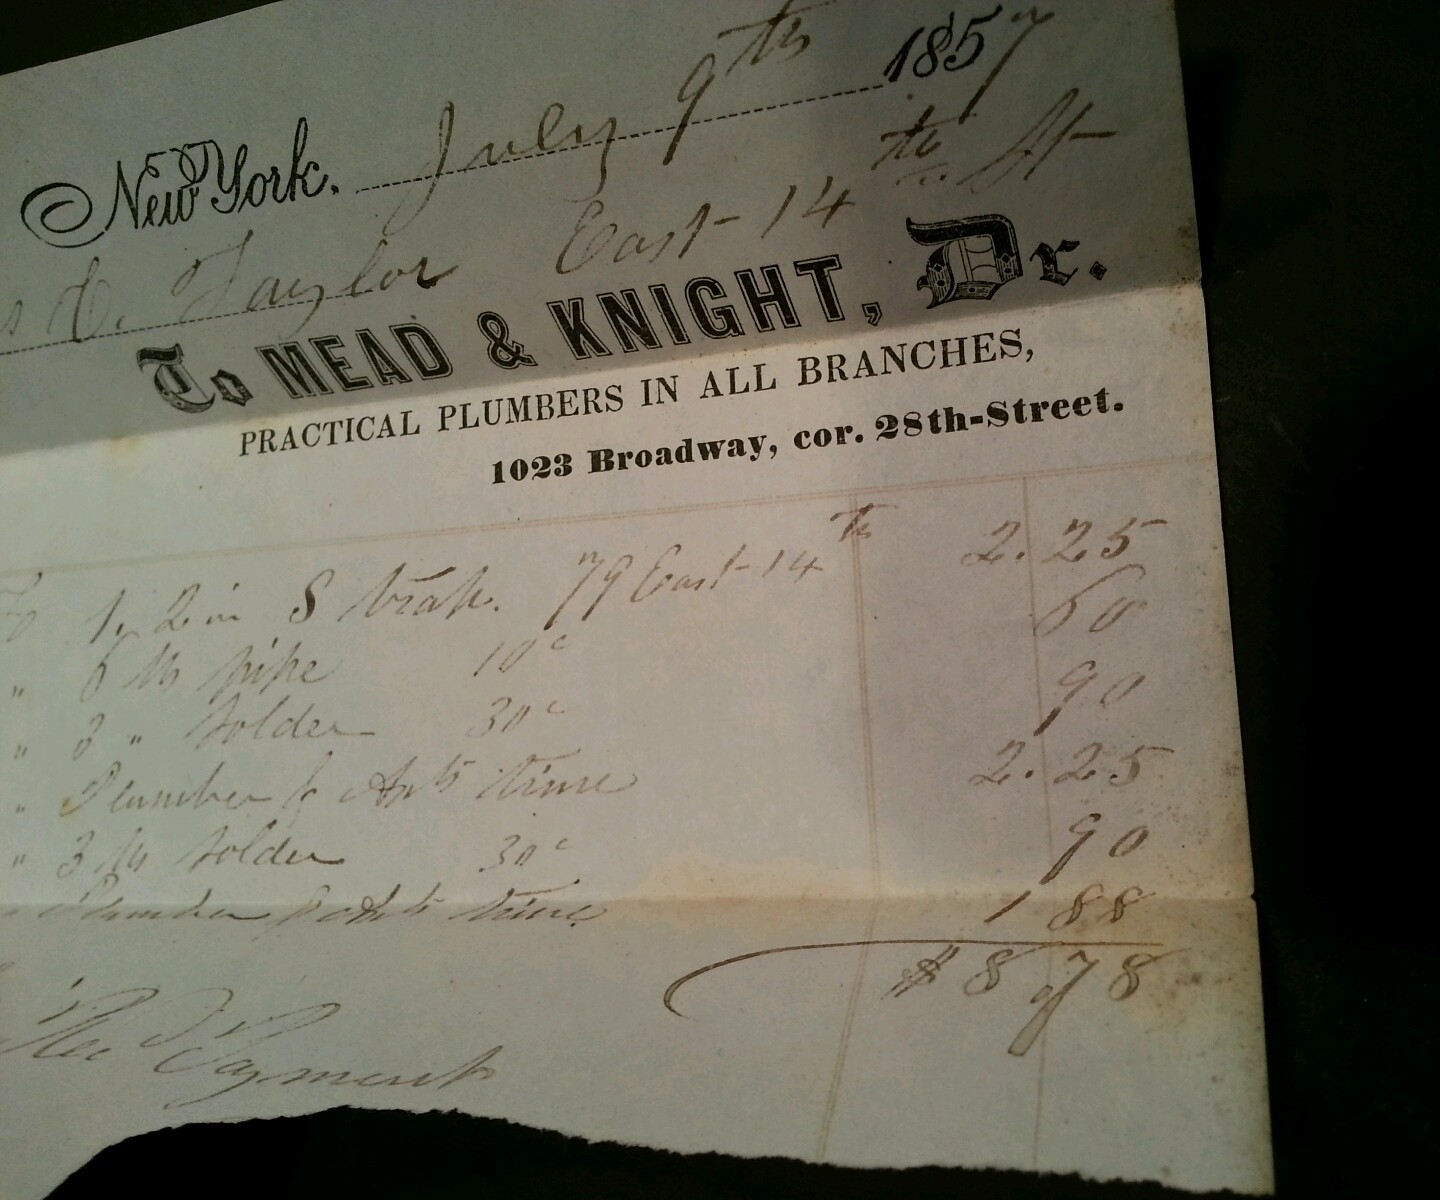 New York. July 9th 1857
C. Taylor East 14th St
To MEAD & KNIGHT, Dr.
PRACTICAL PLUMBERS IN ALL BRANCHES,
1023 Broadway, cor. 28th-Street.
To 1. 2 in S trap. 79 East 14th 2.25
" 6 lb pipe 10c 60
" 3 " solder 30c 90
" Plumber & time 2.25
" 3 lb solder 30c 90
" Plumber & time 1 88
$8 78
Rec Payment